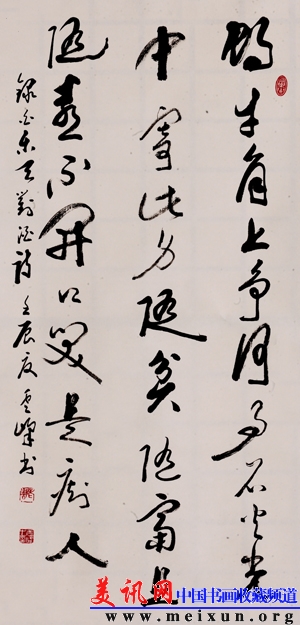 蜗牛角上争何事石火光
中寄此身随贫随富且
随喜不开口笑是痴人
录白乐天对酒诗 壬辰夏 云峰书
美讯网 中国书画收藏频道
www.meixun.org